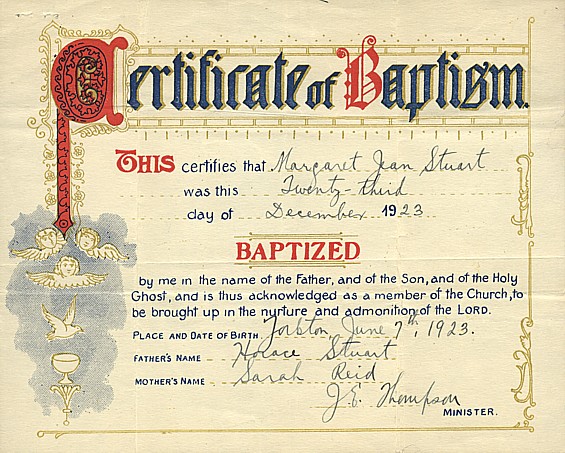 Certificate of Baptism.
THIS certifies that Margaret Jean Stuart
was this Twenty-third
day of December 1923
BAPTIZED
by me in the name of the Father, and of the Son, and of the Holy
Ghost, and is thus acknowledged as a member of the Church, to
be brought up in the nurture and admonition of the LORD.
PLACE AND DATE OF BIRTH. June 7th, 1923.
FATHER'S NAME Horace Stuart
MOTHER'S NAME Sarah Reid
J.E. Thompson
MINISTER.